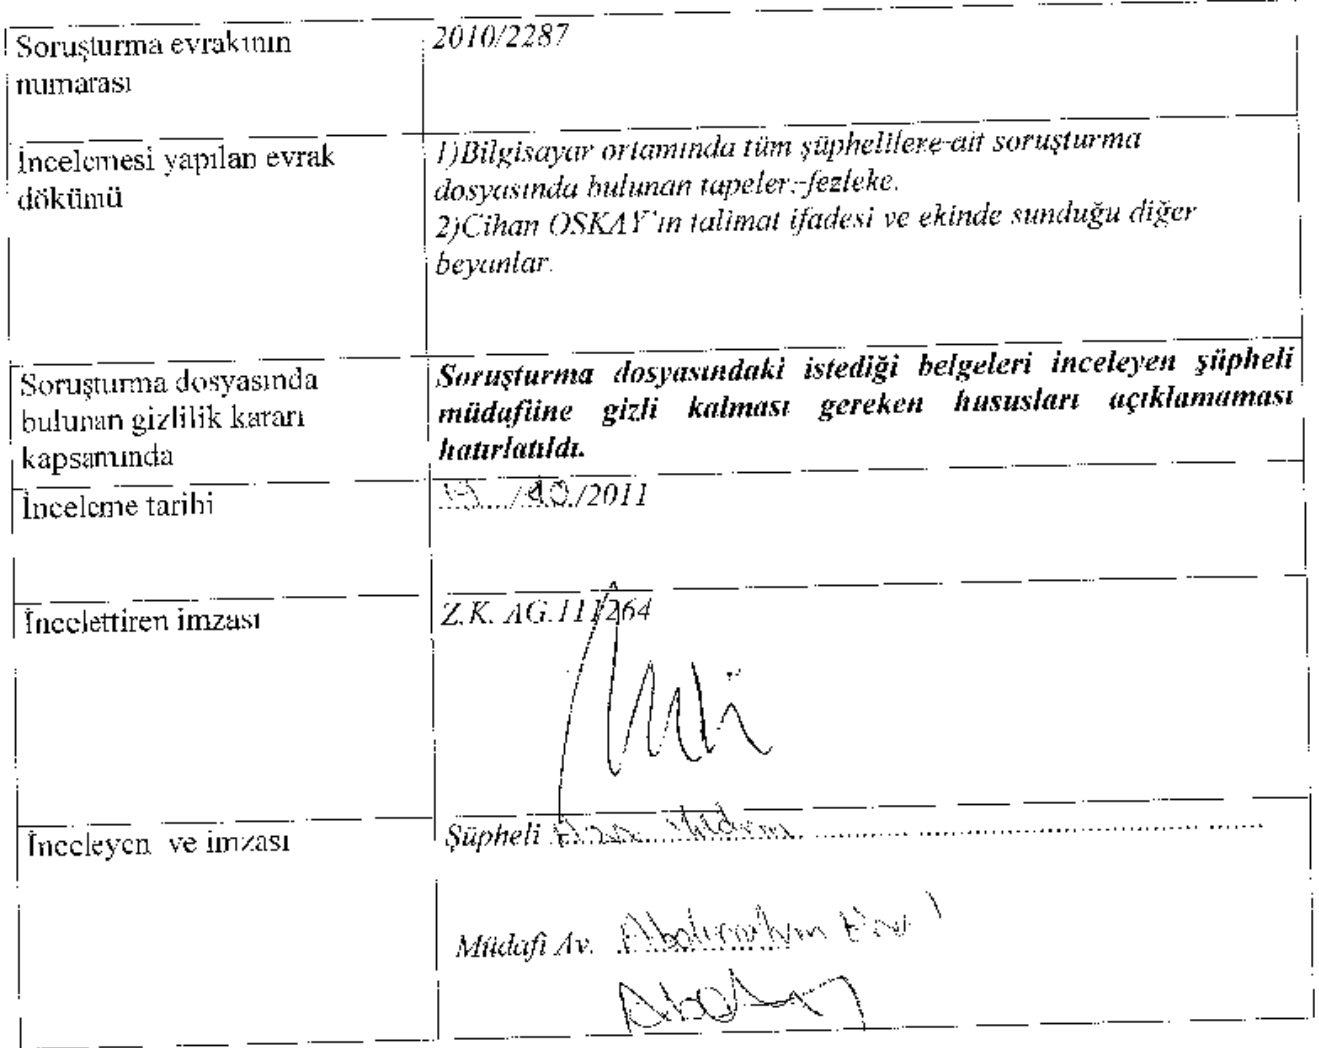 Soruşturma evrakının
numarası
2010/2287
İncelemesi yapılan evrak
dökümü
1)Bilgisayar ortamında tüm şüphelilere-ait soruşturma
dosyasında bulunan tapeler.-fezleke.
2)Cihan OSKAY'ın talimat ifadesi ve ekinde sunduğu diğer
beyanlar.
Soruşturma dosyasında
bulunan gizlilik kararı
kapsamında
Soruşturma dosyasındaki istediği belgeleri inceleyen şüpheli
müdafiine gizli kalması gereken hususları açıklamaması
hatırlatıldı.
İnceleme tarihi
/2011
İncelettiren imzası
Z.K. AG.111264
İnceleyen ve imzası
Şüpheli Aziz Yıldırım
Müdafi Av. Abdurrahim